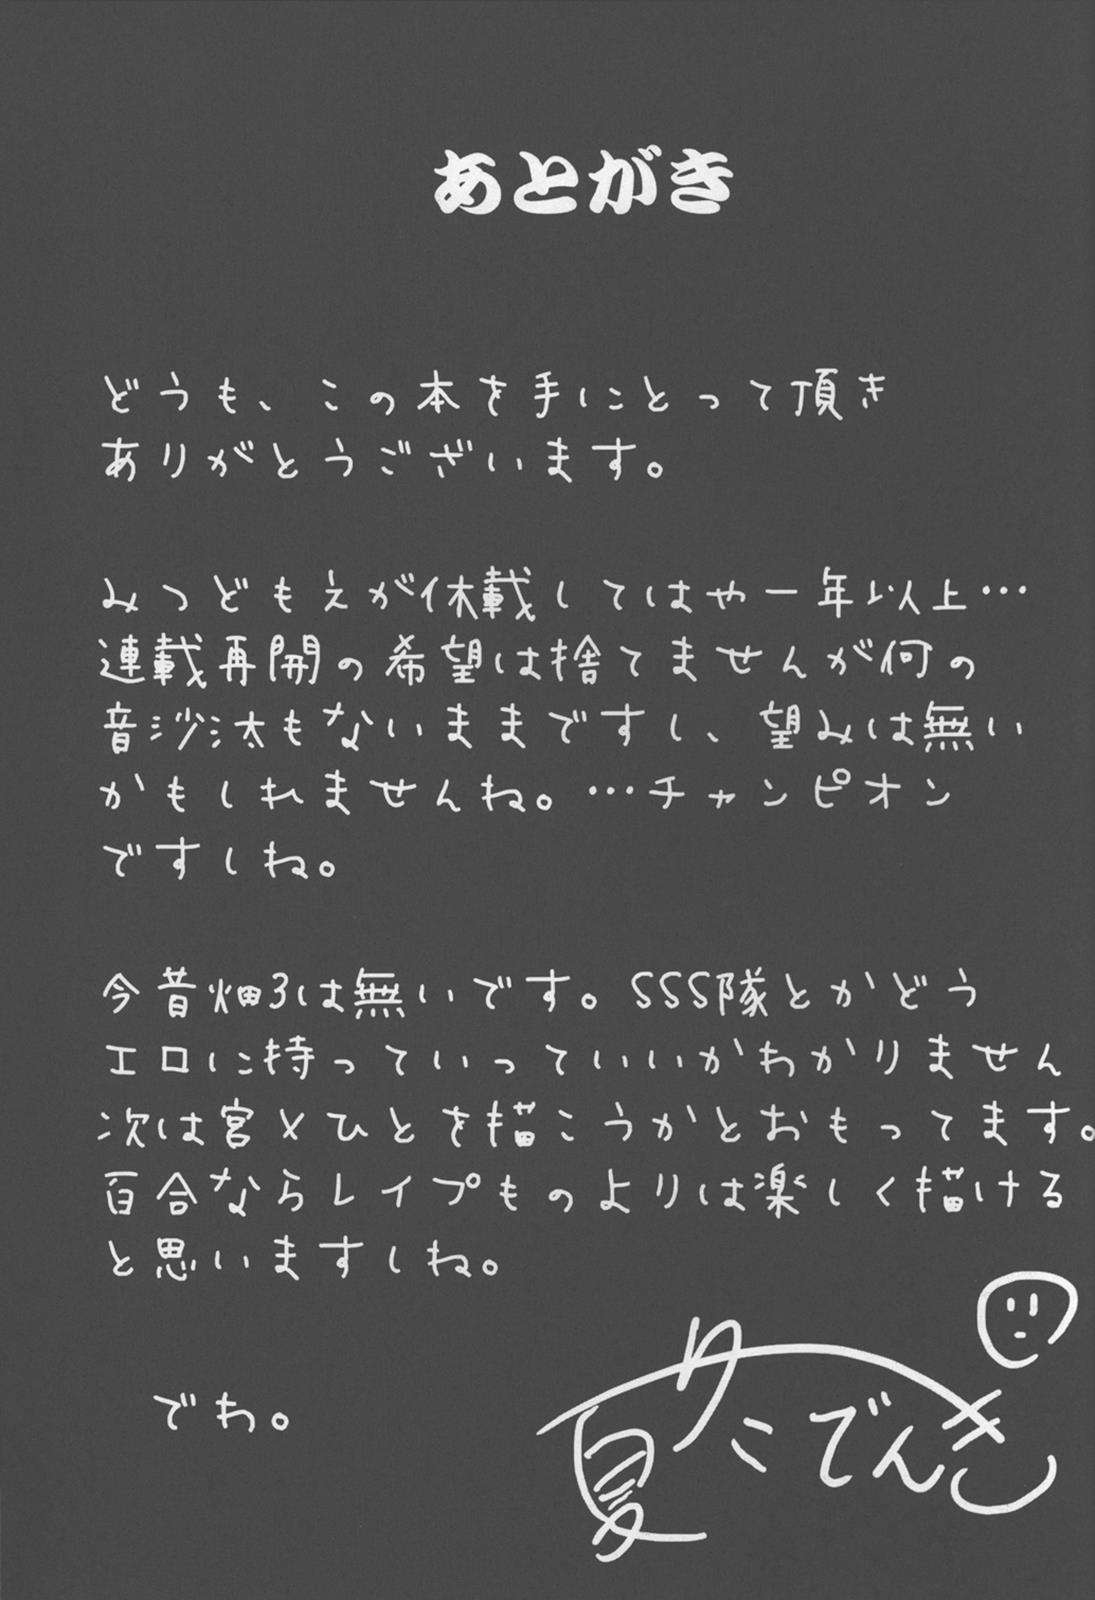 あとがき
どうも、この本を手にとって頂き
ありがとうございます。
みつどもえが休載してはや一年以上…
連載再開の希望は捨てませんが何の
音沙汰もないままですし、望みは無い
かもしれませんね。…チャンピオン
ですしね。
今昔畑3は無いです。SSS隊とかどう
エロに持っていっていいかわかりません
次は宮×ひとを描こうかとおもってます。
百合ならレイプものよりは楽しく描ける
と思いますしね。
でわ。
夏タこでんき